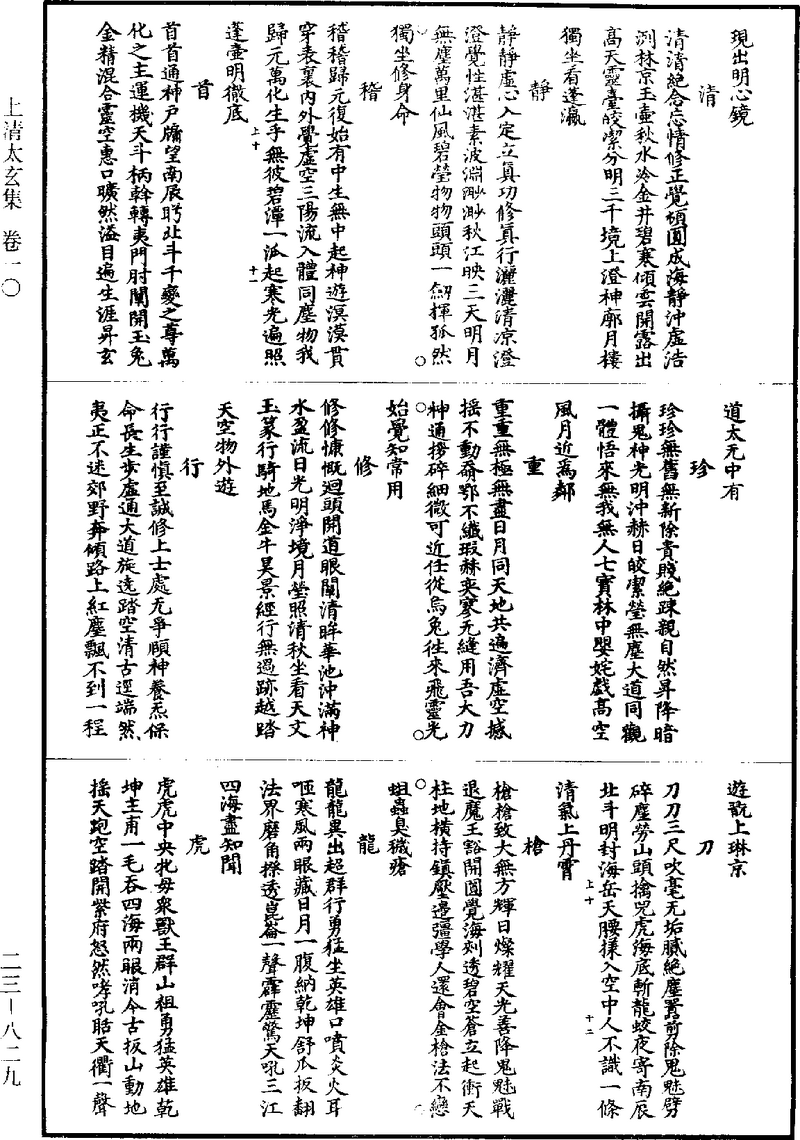 現出明心鏡
清
清清絕念忘情修正覺頓圓成海靜沖虛浩
渕林京玉壺秋水冷金井碧寒傾雲開露出
高天靈臺皎潔分明三千境上澄神廓月樓
獨坐看蓬瀛
靜
靜靜虛心入定立眞功修眞行灑灑清凉澄
澄覺性湛湛素波淵渺渺秋江映三天明月
無塵萬里仙風碧瑩物物頭頭一劒揮孤然
獨坐修身命
稽
稽稽歸元復始有中生無中起神遊溟漠貫
穿表裏內外覺虛空三陽流入體同塵物我
歸元萬化生乎無彼碧潭一泒起寒光遍照
蓬壺明徹底
首
首首通神户牖望南辰眄北斗千變之尊萬
化之主運機天斗柄斡轉夷門肘闡開玉兔
金精混合靈空惠口曠然溢目遍生涯昇玄
道太无中有
珍
珍珍無舊無新除貴賤絕踈親自然昇降暗
攝鬼神光明沖赫日皎潔瑩無塵大道同觀
一體悟來無我無人七寶林中嬰姹戲高空
風月近爲鄰
重
重重無極無盡日月同天地共遍濟虛空撼
摇不動奫鄂不纖瑕赫奕寥无縫用吾大力
神通搒碎細微可近任從烏兔往來飛靈光
始覺知常用
修
修修慷慨迴頭開道眼闡清眸華池沖滿神
水盈流日光明淨境月瑩照清秋坐看天文
玉篆行騎地馬金牛昊景經行無過跡越踏
天空物外遊
行
行行謹慎至誠修上士處无爭頤神養炁保
命長生步虛通大道旋遶踏空清古逕端然
夷正不迷郊野奔傾路上紅塵飄不到一程
遊翫上琳京
刀
刀刀三尺吹毫无垢膩絕塵囂剪除鬼魅劈
碎塵勞山頭擒兕虎海底斬龍蛟夜寄南辰
北斗明封海岳天腰揉入空中人不識一條
清氣上丹霄
槍
槍槍致大無方輝日燦耀天光善降鬼魅戰
退魔王豁開圓覺海剡透碧空蒼立起衝天
柱地橫持鎮壓邉彊學人還會金槍法不戀
蛆蟲臭穢瘡
龍
龍龍異出超群行勇猛坐英雄口噴炎火耳
咂寒風兩眼藏日月一腹納乾坤舒爪扳翻
法界磨角搽透崑崙一聲霹靂驚天吼三江
四海盡知聞
虎
虎虎中央牝母衆獸王群山祖勇猛英雄乾
坤主甫一毛吞四海兩眼消今古扳山動地
摇天跑空踏開紫府怒然哮吼聒天衢一聲
上清太玄集　卷一〇
二三—八二九